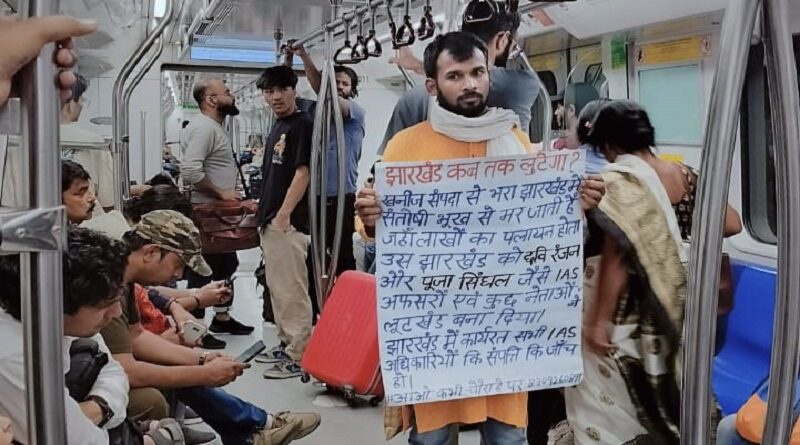 झारखंड कब तक लुटेगा?
खनीज संपदा से भरा झारखंड में
संतोषी भूख से मर जाती है
जहाँ लाखों का पलायन होता
उस झारखंड को दवि रंजन
और पूजा सिंघल जैसे IAS
अफसरों एवं कुछ नेताओं ने
लूटखंड बना दिया।
झारखंड में कार्यरत सभी IAS
अधिकारियों कि संपति कि जाँच
हो।
आओ कभी चौराहे पर